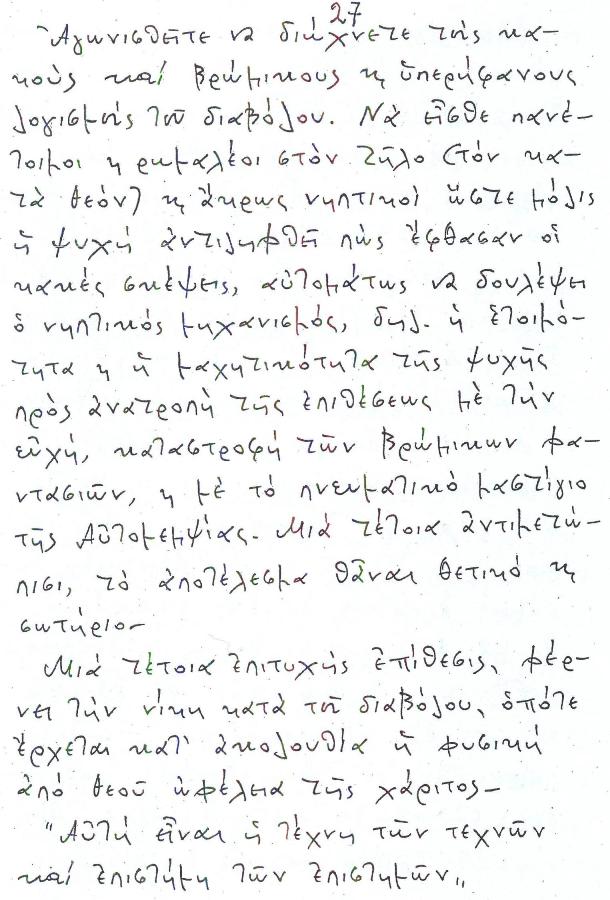 27
Ἀγωνισθεῖτε νά διώχνετε τούς κα-
κούς καί βρώμικους κ ὑπερήφανους
λογισμούς τοῦ διαβόλου. Νά εἶσθε πανέ-
τοιμοι κ ρωμαλέοι στόν ζῆλο (τόν κα-
τά Θεόν) κ ἄκρως νηπτικοί ὥστε μόλις
ἡ ψυχή ἀντιληφθεῖ πώς ἔφθασαν οἱ
κακές σκέψεις, αὐτομάτως νά δουλέψει
ὁ νηπτικός μηχανισμός, δηλ. ἡ ἑτοιμό-
τητα κ ἡ μαχητικότητα τῆς ψυχῆς
πρός ἀνατροπή τῆς ἐπιθέσεως μέ τήν
εὐχή, καταστροφή τῶν βρώμικων φα-
ντασιῶν, κ μέ τό πνευματικό μαστίγιο
τῆς Αὐτομεμψίας. Μιά τέτοια ἀντιμετώ-
πιση, τό ἀποτέλεσμα θἆναι θετικό κ
σωτήριο-
Μιά τέτοια ἐπιτυχής ἐπίθεσις, φέρ-
νει τήν νίκη κατά τοῦ διαβόλου, ὁπότε
ἔρχεται κατ' ἀκολουθία ἡ φυσική
ἀπό Θεοῦ ὠφέλεια τῆς χάριτος-
"Αὐτή εἶναι ἡ τέχνη τῶν τεχνῶν
καί ἐπιστήμη τῶν ἐπιστημῶν"